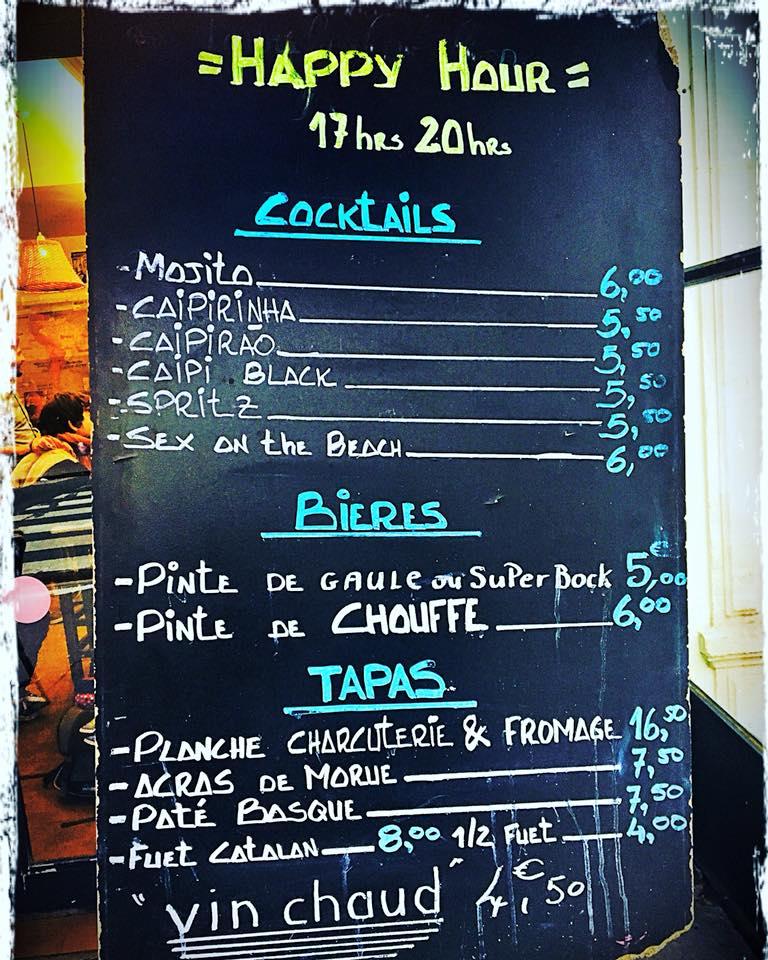 =HAPPY HOUR=
17hrs 20hrs
COCKTAILS
-MOJITO 6,00
-CAIPIRINHA 5,50
-CAIPIRÃO 5,50
-CAIPI BLACK 5,50
-SPRITZ 5,50
-SEX ON the BEACH 6,00
BIERES
-PINTE DE GAULE ou SuPer Bock 5,00€
-PINTE DE CHOUFFE 6,00
TAPAS
-PLANCHE CHARCUTERIE & FROMAGE 16,50
-ACRAS DE MORUE 7,50
-PATÉ BASQUE 7,50
-FUET CATALAN 8,00 1/2 FUET 4,00
"vin chaud" 4,€50